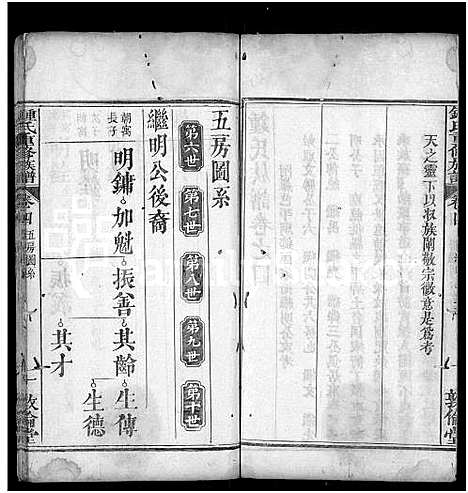 鍾氏重修族譜 卷四
天之靈下以叔族閑敬宗徽意是爲考
敦倫堂
五房圖系
第六世 第七世 第八世 第九世 第十世
繼明公後裔
朝寓長子
明鏞 加魁 振善 其齡 生傳
生德
其才
鍾氏重修族譜 卷四 五房圖系 一 敦倫堂